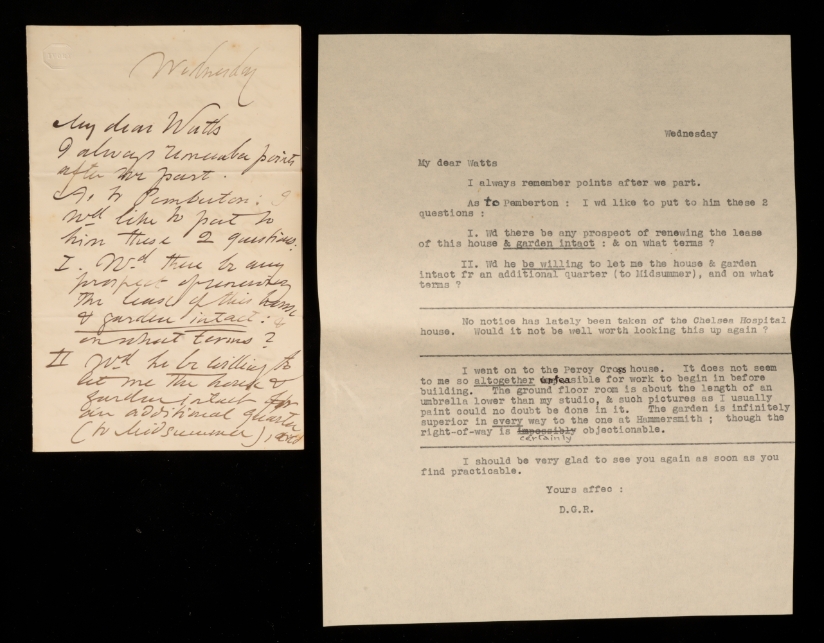 Wednesday
My dear Watts
I always remember points
after we part.
As to Pemberton: I
wd like to put to
him these 2 questions:
I. Wd there be any
prospect of renewing
the lease of this house
& garden intact: &
on what terms?
II Wd he be willing to
let me the house &
garden intact for
an additional quarter
(to Midsummer), and
Wednesday
My dear Watts
I always remember points after we part.
As to Pemberton : I wd like to put to him these 2
questions :
I. Wd there be any prospect of renewing the lease
of this house & garden intact : & on what terms ?
II. Wd he be willing to let me the house & garden
intact fr an additional quarter (to Midsummer), and on what
terms ?
No notice has lately been taken of the Chelsea Hospital
house. Would it not be well worth looking this up again ?
I went on to the Percy Cross house. It does not seem
to me so altogether unfeasible for work to begin in before
building. The ground floor room is about the length of an
umbrella lower than my studio, & such pictures as I usually
paint could no doubt be done in it. The garden is infinitely
superior in every way to the one at Hammersmith ; though the
right-of-way is impossibly objectionable.
certainly
I should be very glad to see you again as soon as you
find practicable.
Yours affec :
D.G.R.